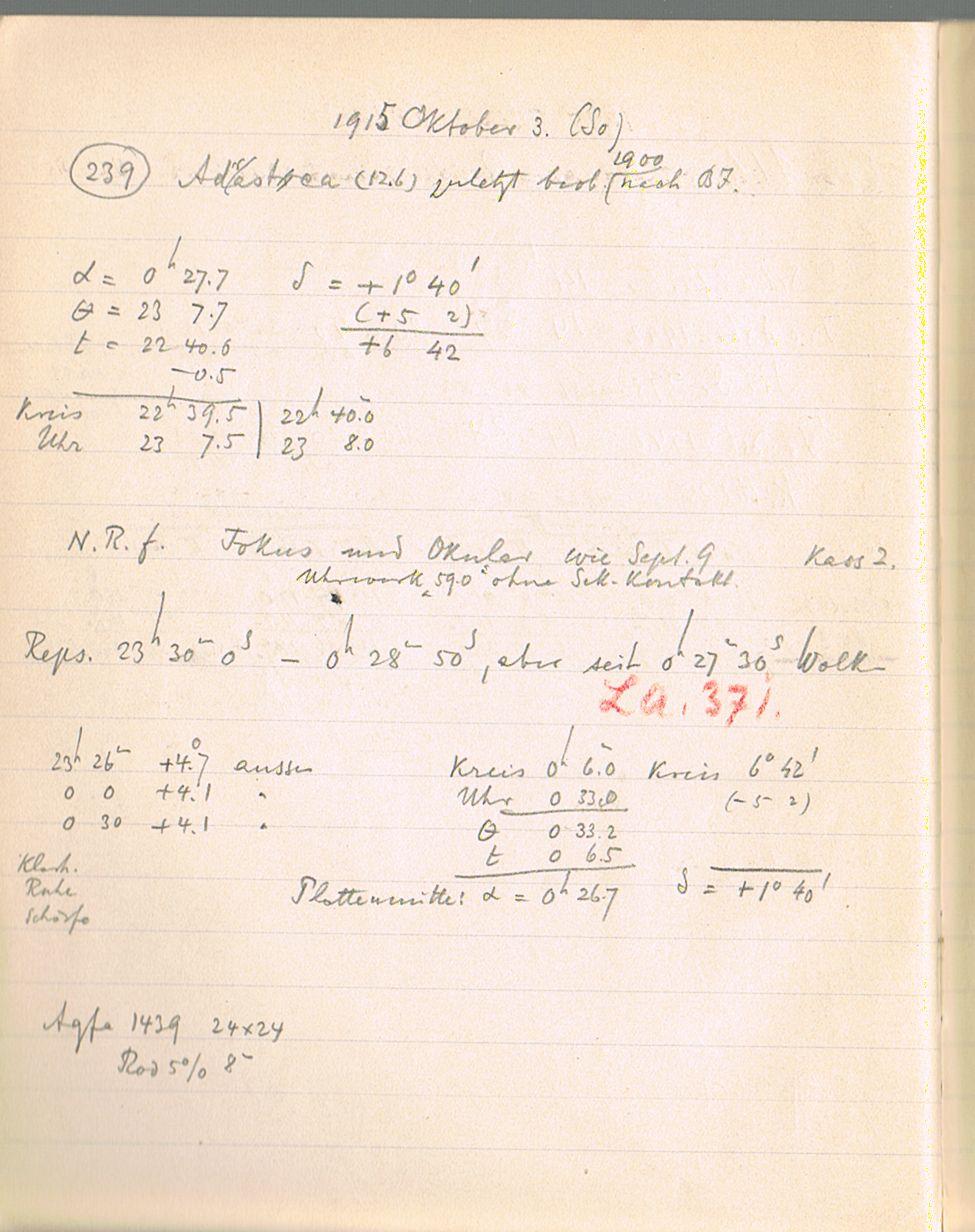 1915 Oktober 3. (So)
239 Adrastea (12.6) zuletzt beob. 1900 (nach BJ.
α = 0h 27.7 δ = +1° 40'
θ = 23 7.7 (+5 2)
t = 22 40.0 +6 42
-0.5
Kreis 22h 39.5 | 22h 40.0
Uhr 23 7.5 | 23 8.0
N.R.f. Fokus und Okular wie Sept. 9 Kass 2.
Uhrwerk 59.0 ohne Sek.-Kontakt.
Reps. 23h 30m 0s – 0h 28m 50s, aber seit 0h 27m 30s Wolk
La. 371.
23h 26m +4.°7 aussen
0 0 +4.1 "
0 30 +4.1 "
Kreis 0h 6.0m Kreis 6° 42'
Uhr 0 33.0 (-5 2)
θ 0 33.2
t 0 6.5
Plattenmitte: α = 0h 26.7 δ = +1° 40'
Klarh.
Ruhe
Schärfe
Agfa 1439 24x24
Rod 5% 8m